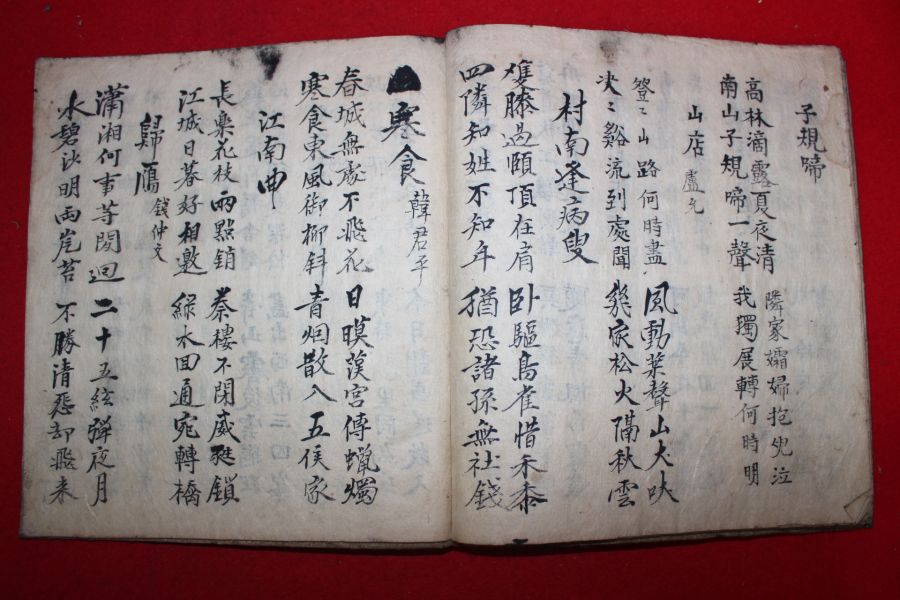 子規啼
高林滴露夏夜清
南山子規啼一聲
隣家孀婦抱兒泣
我獨展轉何時明
山店 盧允
登〻山路何時盡
决〻谿流到處聞
風動葉聲山犬吠
幾家松火隔秋雲
村南逢病叟
隻膝過頤頂在肩
四隣知姓不知年
卧驅鳥雀惜禾黍
猶恐諸孫無社錢
寒食 韓君平
春城無處不飛花
寒食東風御柳斜
日暮漢宮傳蠟燭
青烟散入五侯家
江南曲
長樂花枝雨點銷
江城日暮好相邀
秦樓不閉威蕤鎖
綠水回通宛轉橋
歸鴈 錢仲文
瀟湘何事等閑廻
水碧沙明兩岸苔
二十五絃彈夜月
不勝清怨却飛来